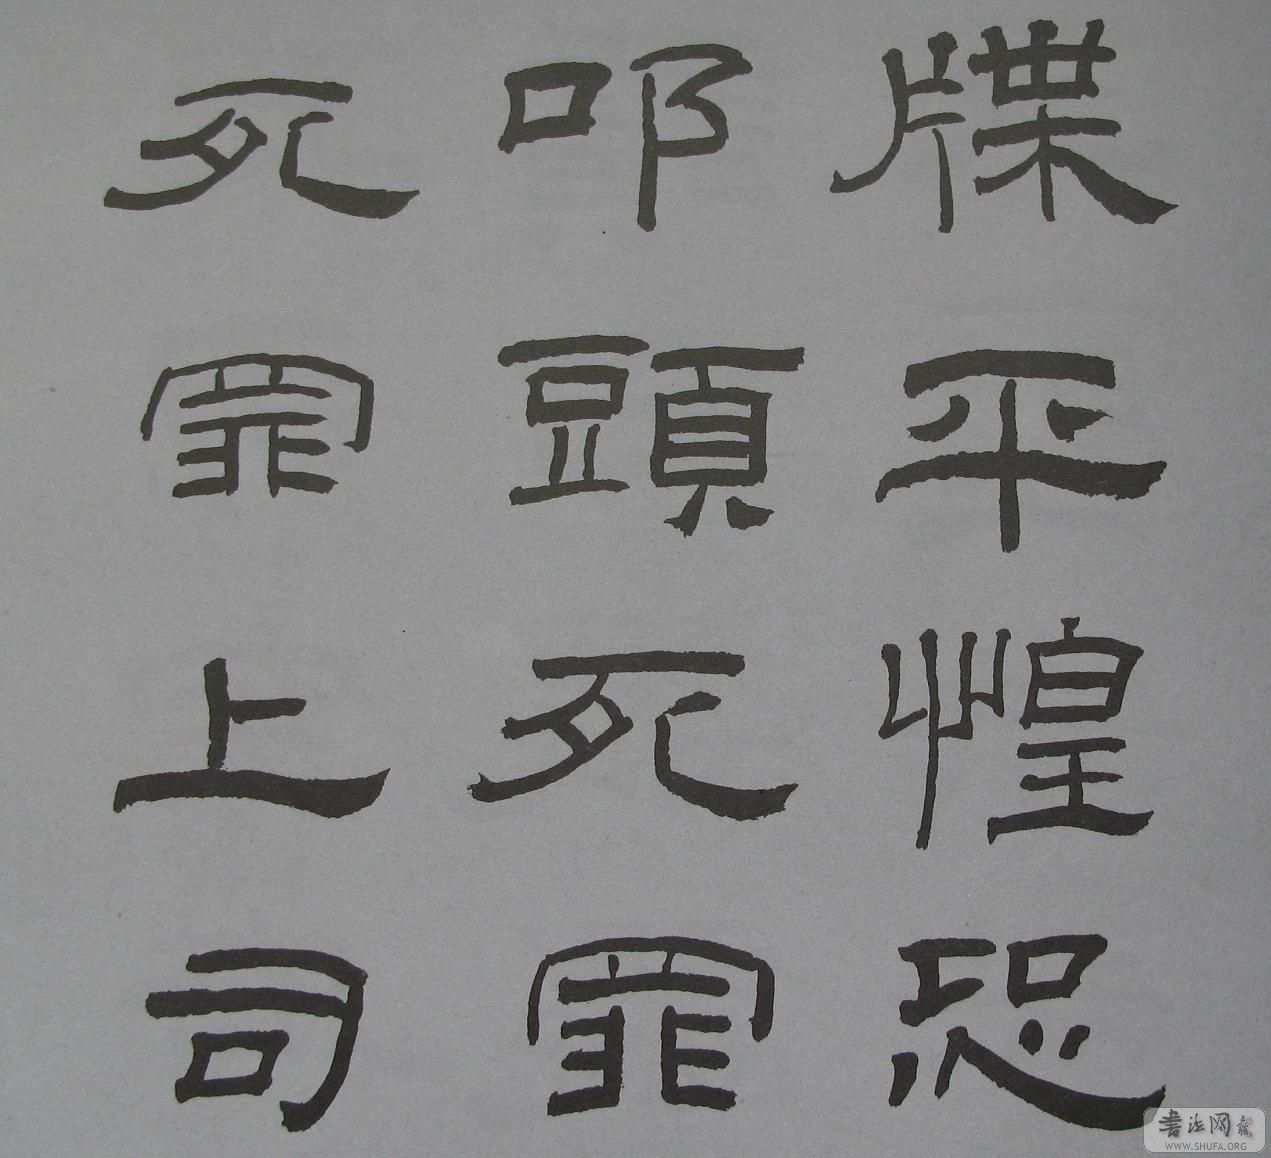 牒平惶恐
叩頭死罪
死罪上司
書法网
WWW.SHUFA.ORG